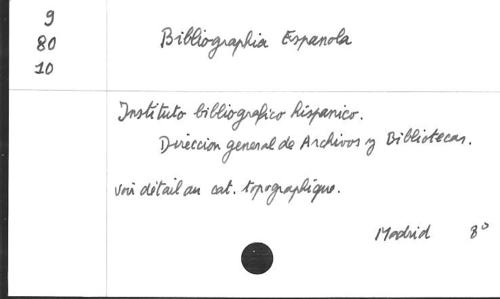 9
80
10
Bibliographia Espanola
Instituto bibliografico hispanico.
Direccion general de Archivos y Bibliotecas.
voir détail au cat. topographique.
Madrid 8°